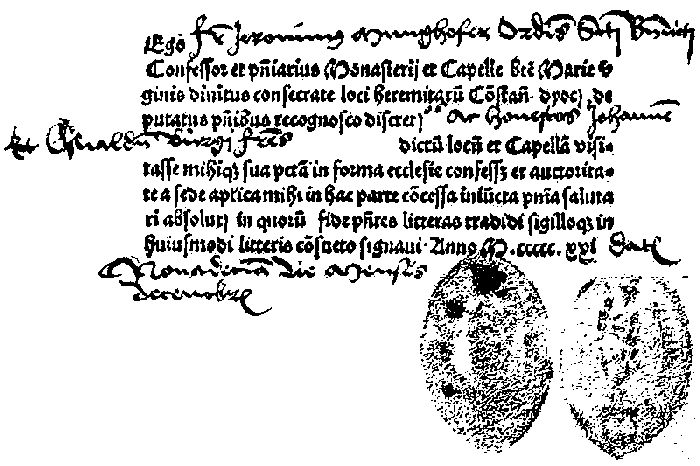 Ego fr̄ Jeronimus Munghofer Ordīs Scti Bn̄dicti
Confessor et pn̄iarius Monasterij et Capelle btē Marie v
ginis diuinitus consecrate loci heremitarū Cōstan̄ dyoc̄ de
putatus pn̄ibus recognosco discret) ac honestos Johannē
et Oswaldū fr̄es dictū locū et Capellā visi-
tasse mihiqꝫ sua pctā in forma ecclesie confessꝫ et auctorita-
te a sede aplica mihi in hac parte cōcessa iniūcta pn̄ia saluta
ri absolui in quorū fidē pn̄tes litteras tradidi sigilloqꝫ in
huiusmodi litteris cōsueto signaui Anno M.ccccc.xxi Datē
Nona die Mensis
Decembrꝭ